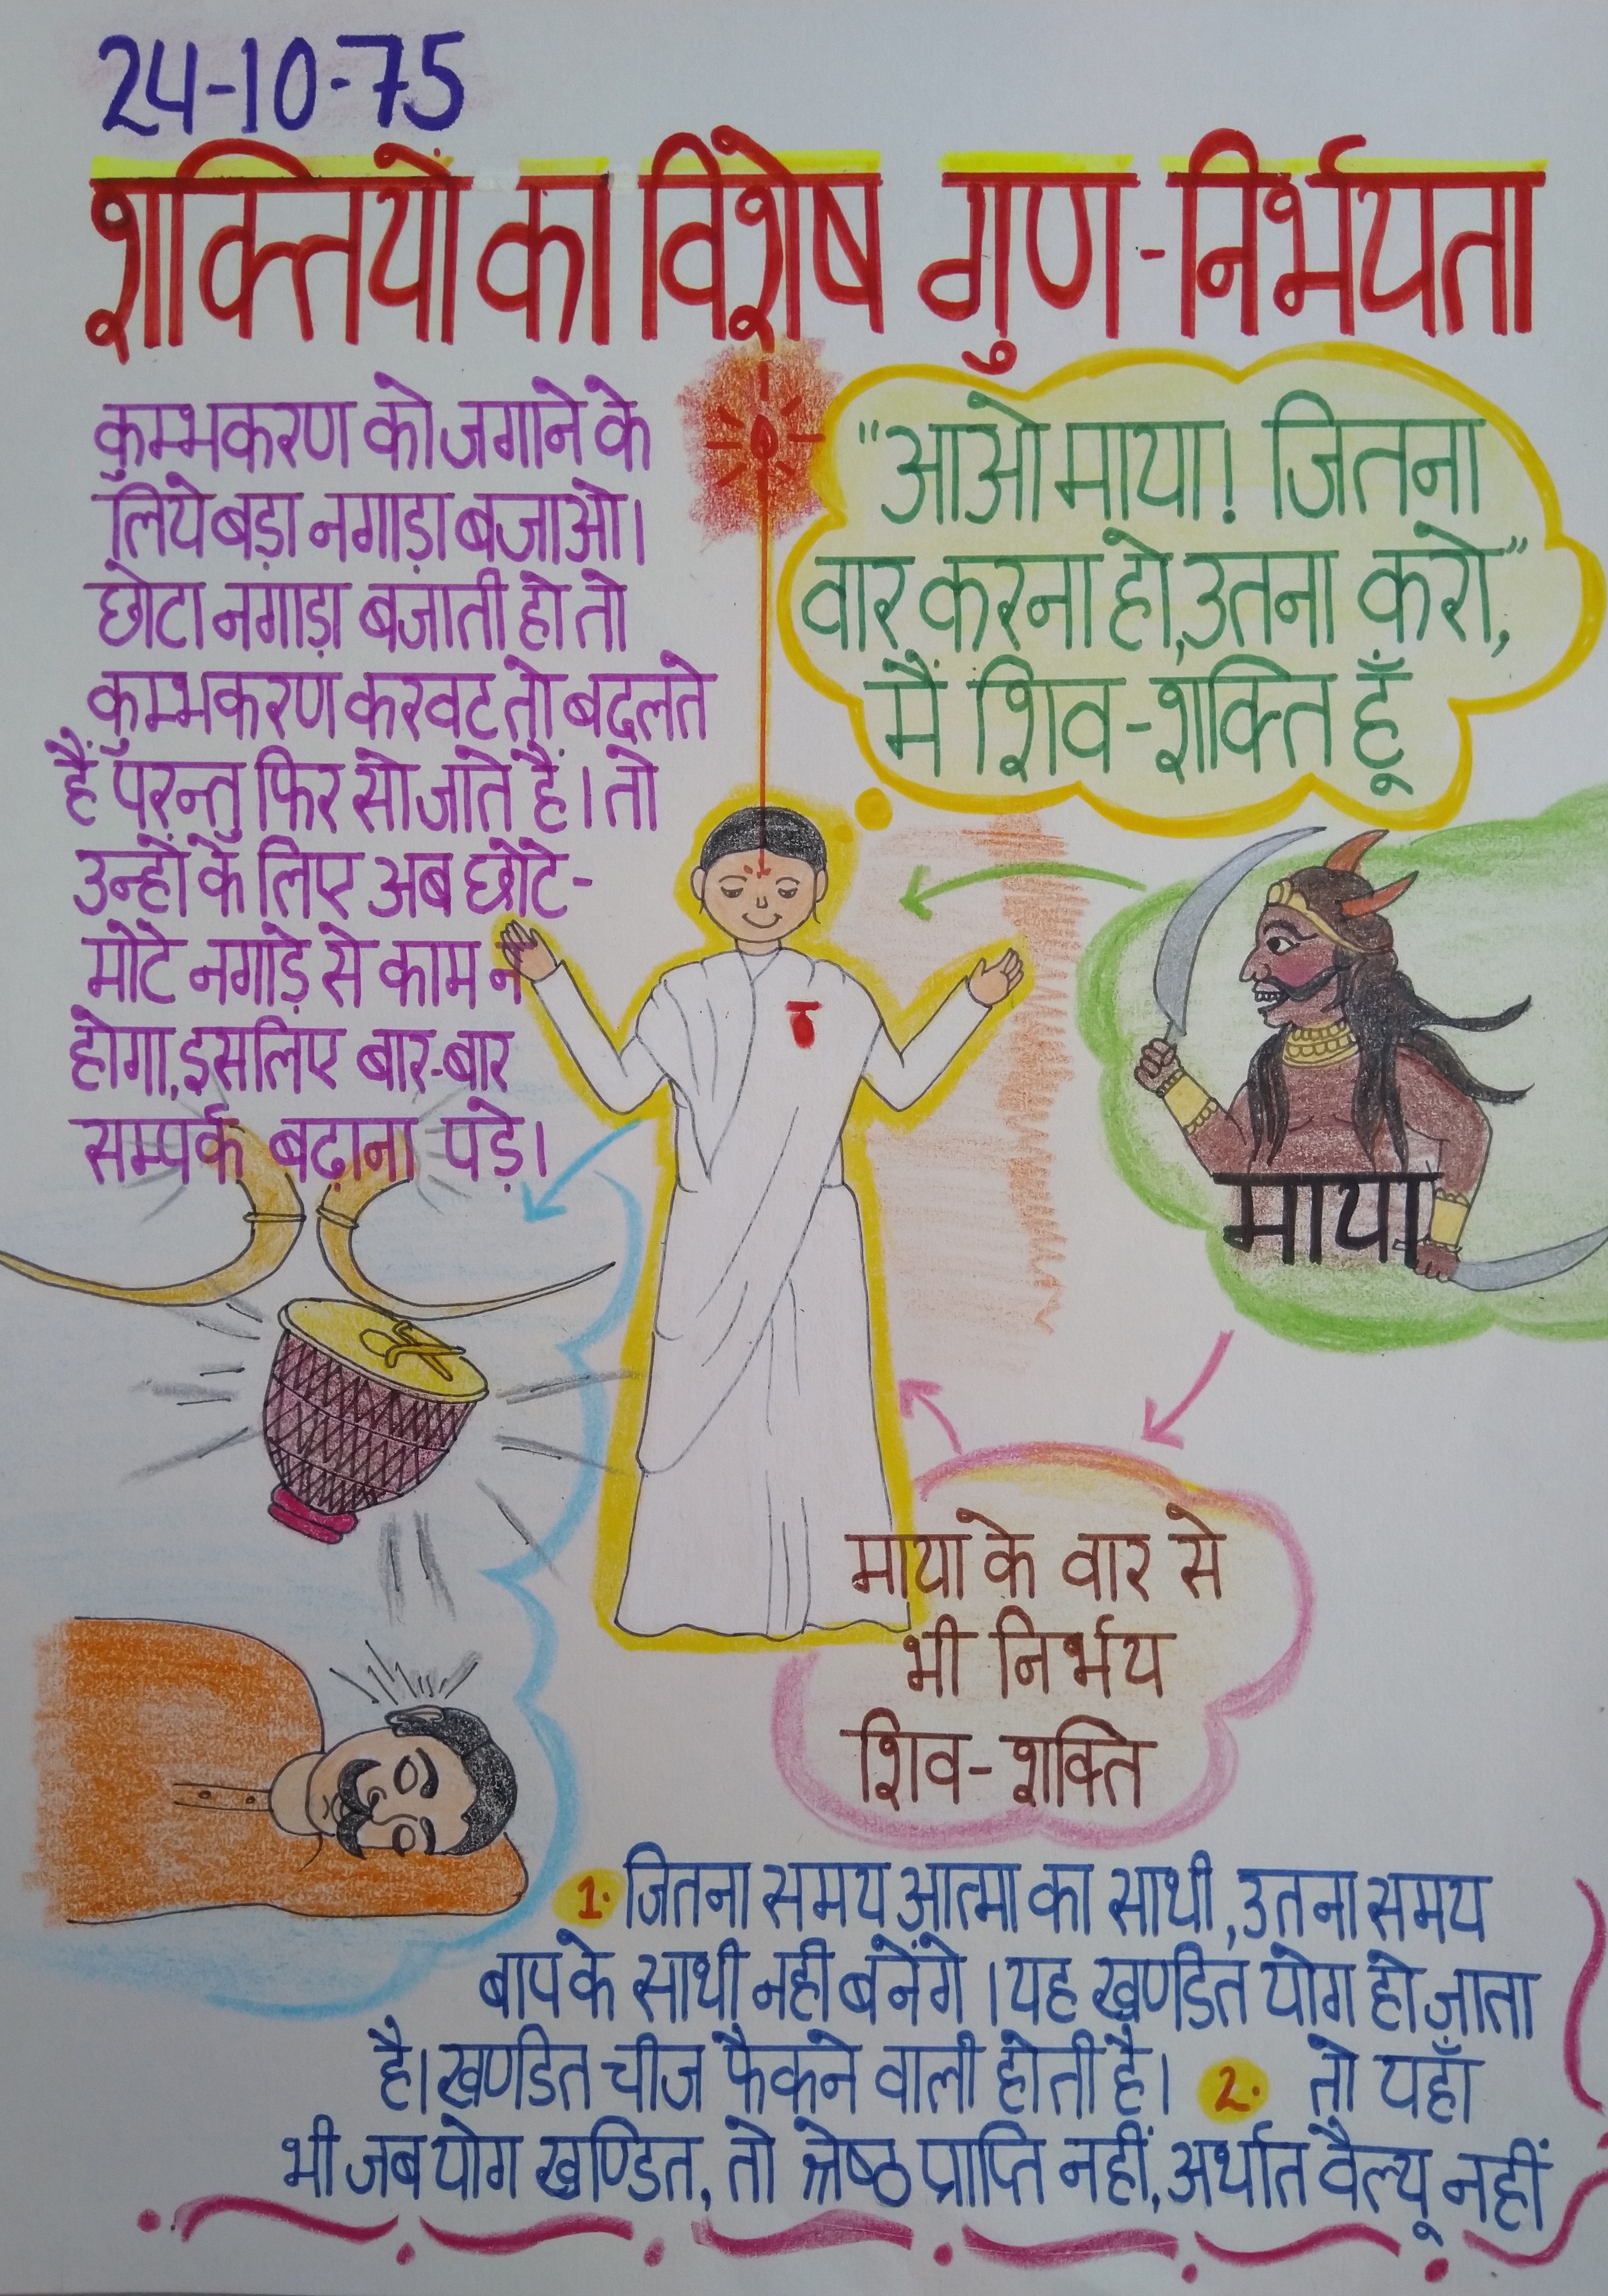 24-10-75
शक्तियों का विशेष गुण-निर्भयता
कुम्भकरण को जगाने के
लिये बड़ा नगाड़ा बजाओ।
छोटा नगाड़ा बजाती हो तो
कुम्भकरण करवट तो बदलते
हैं परन्तु फिर सो जाते हैं। तो
उन्हों के लिए अब छोटे-
मोटे नगाड़े से काम न
होगा, इसलिए बार-बार
सम्पर्क बढ़ाना पड़े।
"आओ माया! जितना
वार करना हो, उतना करो,"
मैं शिव-शक्ति हूँ
माया
माया के वार से
भी निर्भय
शिव-शक्ति
1. जितना समय आत्मा का साथी, उतना समय
बाप के साथी नहीं बनेंगे। यह खण्डित योग हो जाता
है। खण्डित चीज फैकने वाली होती है। 2. तो यहाँ
भी जब योग खण्डित, तो श्रेष्ठ प्राप्ति नहीं, अर्थात वैल्यू नहीं